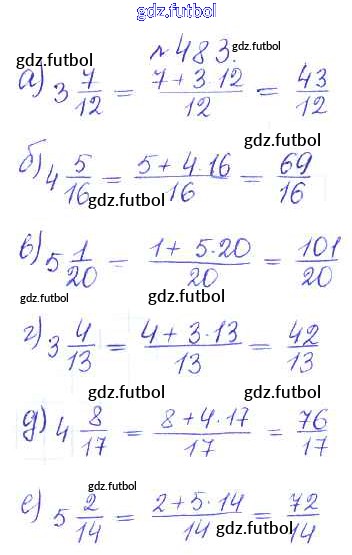 gdz.futbol
№483. gdz.futbol
gdz.futbol
а) 3 7/12 = (7 + 3·12)/12 = 43/12
gdz.futbol
б) 4 5/16 = (5 + 4·16)/16 = 69/16
gdz.futbol
gdz.futbol
в) 5 1/20 = (1 + 5·20)/20 = 101/20
gdz.futbol
gdz.futbol
г) 3 4/13 = (4 + 3·13)/13 = 42/13
gdz.futbol
gdz.futbol
д) 4 8/17 = (8 + 4·17)/17 = 76/17
gdz.futbol
gdz.futbol
е) 5 2/14 = (2 + 5·14)/14 = 72/14
gdz.futbol